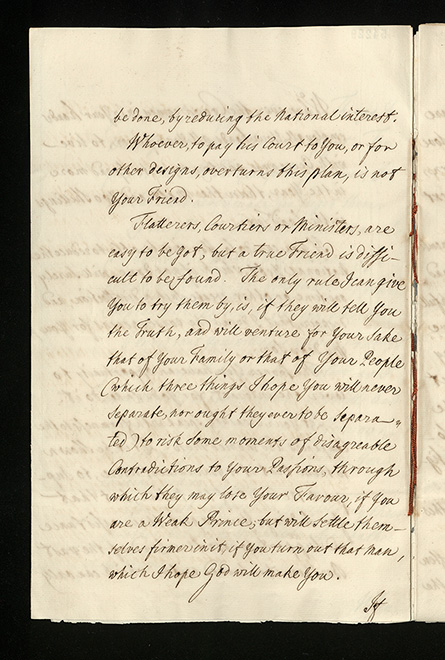 be done, by reducing the National interest.
Whoever, to pay his Court to You, or for
other designs, overturns this plan, is not
Your Friend.
Flatterers, Courtiers or Ministers, are
easy to be got, but a true Friend is diffi-
cult to be found. The only rule I can give
You to try them by, is, if they will tell You
the Truth, and will venture for Your sake
that of Your Family or that of Your People
(which three things I hope You will never
separate, nor ought they ever to be separa-
ted) to risk some moments of disagreable
Contradictions to Your Passions, through
which they may lose Your Favour, if You
are a Weak Prince; but will settle them-
selves firmer in it, if You turn out that Man,
which I hope God will make You.
If